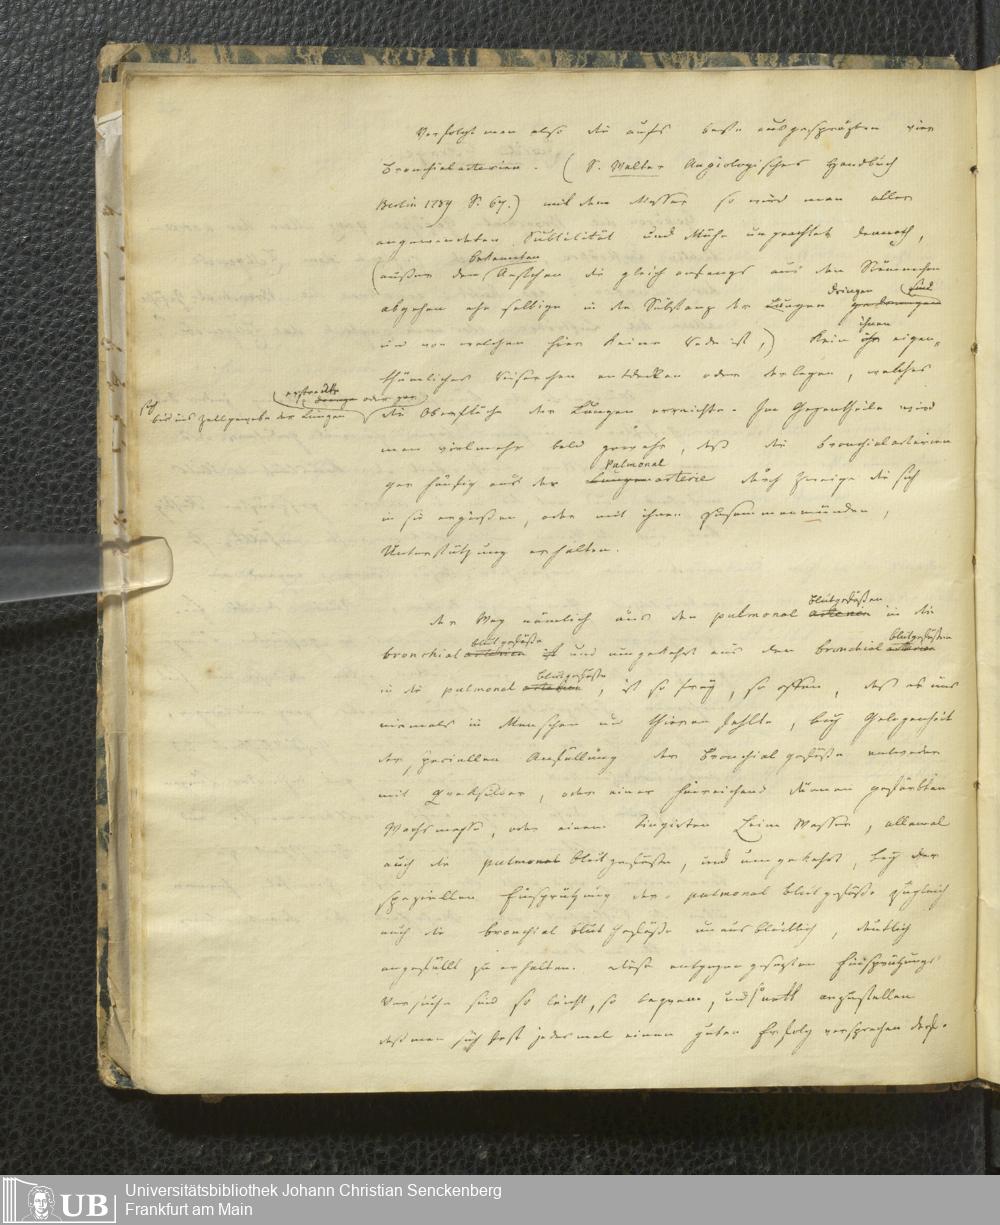 Verfolgt man also die aufs beste ausgesprützten vier
Bronchialarterien. (S. Walter Angiologisches Handbuch
Berlin 1789 S. 67.) mit dem Messer so wird man aller
angewendeten Subtilität und Mühe ungeachtet dennoch,
(außer den bekannten Aestchen die gleich anfangs aus den Stämmchen
abgehen ehe selbige in die Substanz der Lungen dringen
und von welchen hier keine Rede ist,) kein ihnen eigen=
thümliches Reischen entdecken oder darlegen, welches
sich bis ins Zellgewebe der Lungen erstreckte oder gar
die Oberfläche der Lungen erreichte. Im Gegentheile wird
man vielmehr bald gewahr, daß die Bronchialarterien
gar häufig aus der Pulmonal arterie durch Zweige die sich
in sie ergießen, oder mit ihnen zusammenmünden,
Unterstützung erhalten.
der Weg nämlich aus den pulmonal blutgefäßen in die
bronchial blutgefäße und umgekehrt aus den bronchial blutgefäßen
in die pulmonal blutgefäße, ist so frey, so offen, daß es uns
niemals in Menschen und Thieren fehlte, bey Gelegenheit
der speciellen Anfüllung der Bronchial gefäße entweder
mit Quecksilber, oder einer hinreichend dünnen gefärbten
Wachsmasse, oder einem tingirten Leim Wasser, allemal
auch die pulmonal blutgefäße, und umgekehrt, bey der
speziellen Einsprützung der pulmonal blutgefäße zugleich
auch die bronchial blut gefäße unausbleiblich, deutlich
angefüllt zu erhalten. Diese entgegengesezten Einsprützungs
Versuche sind so leicht, so bequem, und so nett anzustellen
daß man sich fast jedesmal einen guten Erfolg versprechen darf.
UB
Universitätsbibliothek Johann Christian Senckenberg
Frankfurt am Main